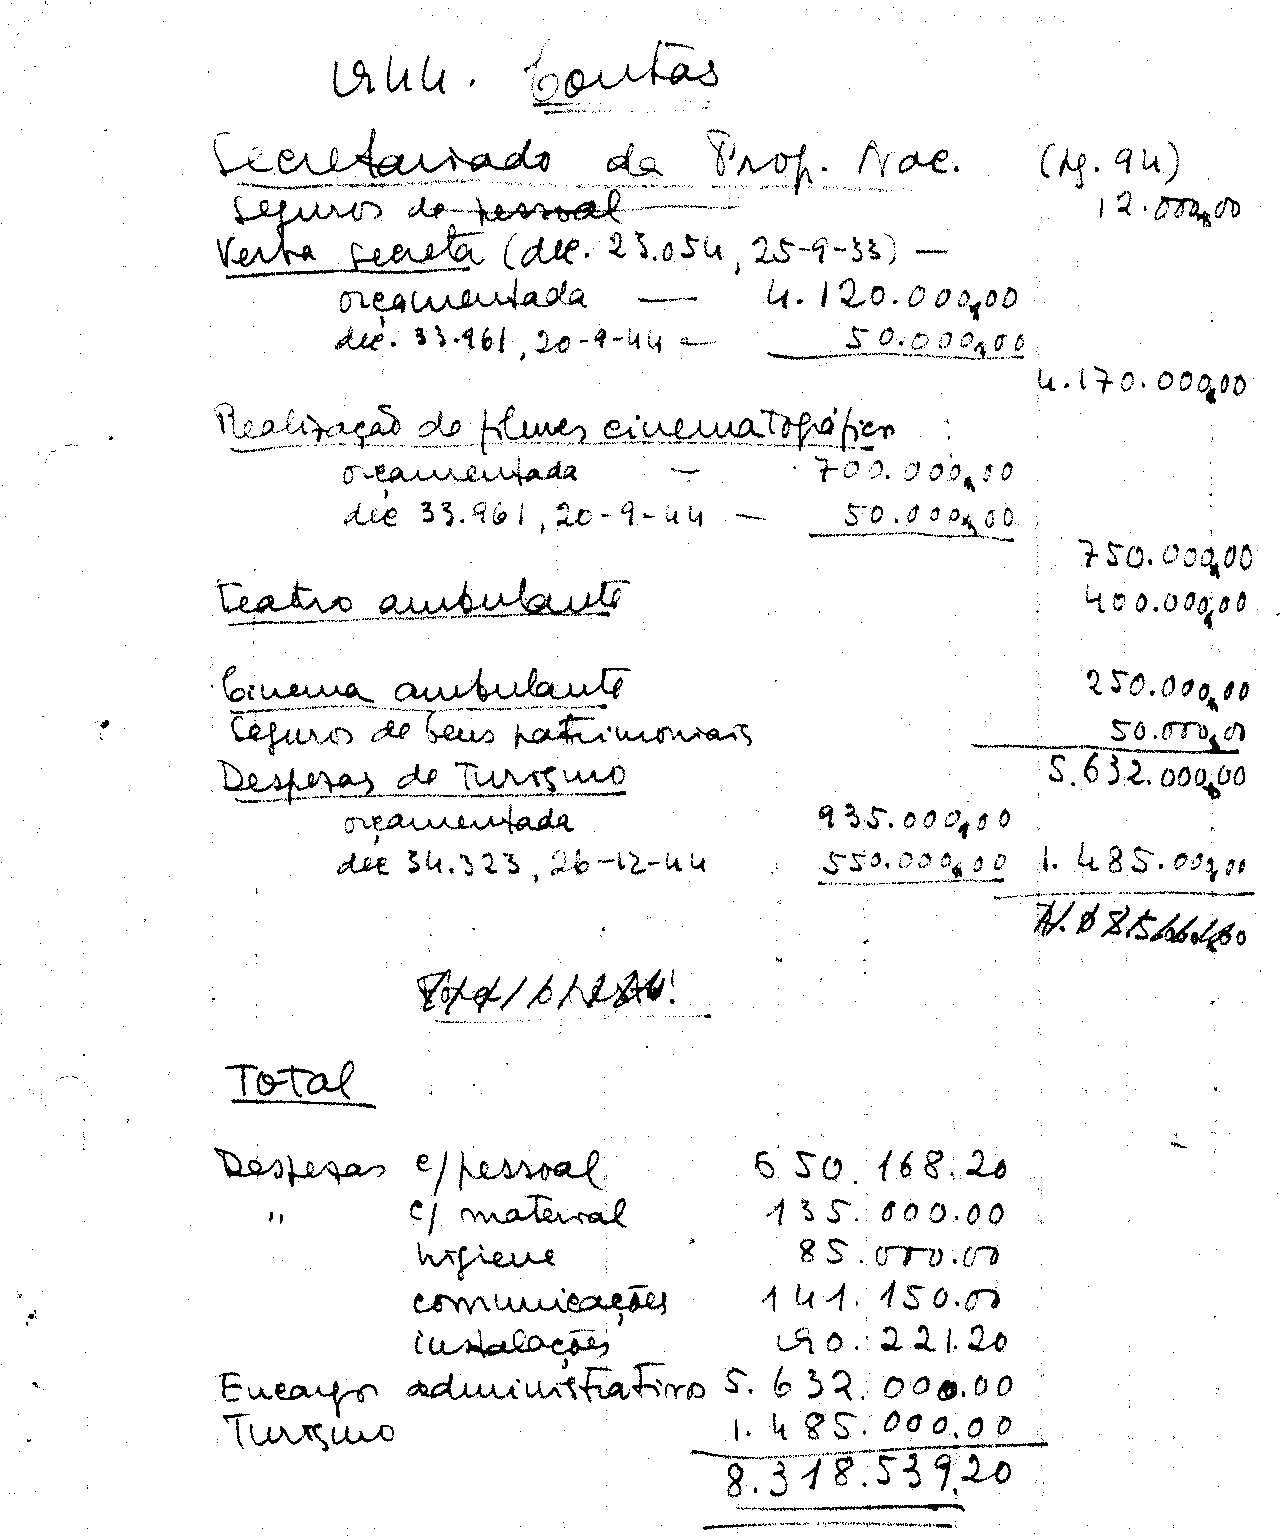 1944. Contas
Secretariado da Prop. Nac. (pg. 94)
Seguros de pessoal 12.000,00
Verba secreta (dec. 23.054, 25-9-33) —
orçamentada — 4.120.000,00
dec. 33.961, 20-9-44 — 50.000,00
4.170.000,00
Realização de filmes cinematográficos
orçamentada — 700.000,00
dec 33.961, 20-9-44 — 50.000,00
750.000,00
Teatro ambulante 400.000,00
Cinema ambulante 250.000,00
Seguros de bens patrimoniais 50.000,00
5.632.000,00
Despesas de Turismo
orçamentada 935.000,00
dec 34.323, 26-12-44 550.000,00 1.485.000,00
Total
Despesas c/pessoal 650.168.20
" c/ material 135.000.00
higiene 85.000.00
comunicações 141.150.00
instalações 190.221.20
Encargos administrativos 5.632.000.00
Turismo 1.485.000.00
8.318.539,20